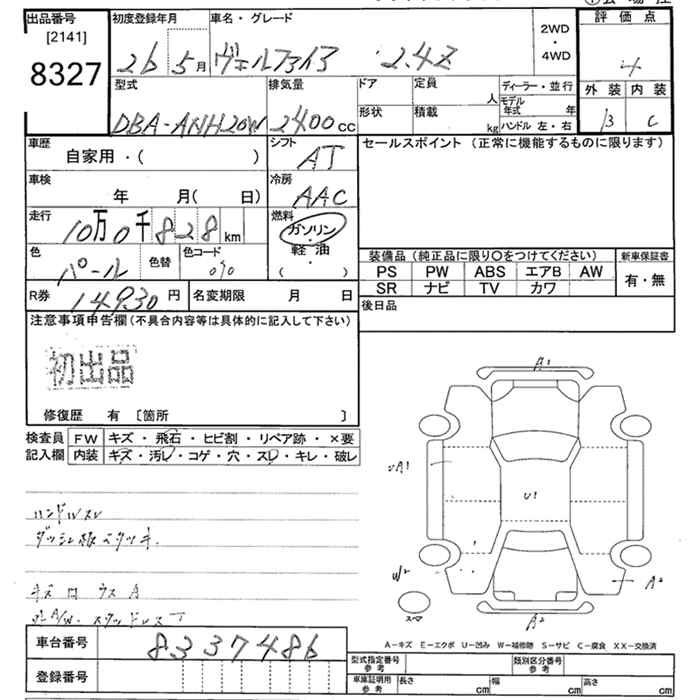 出品番号
[2141]
8327
初度登録年月
26 5月
車名・グレード
ヴェルファイア 2.4Z
2WD
・
4WD
評価点
4
外装 内装
B C
型式
DBA-ANH20W
排気量
2400cc
ドア
形状
定員
人
積載
kg
ディーラー・並行
モデル年式 年
ハンドル 左・右
車歴
自家用・( )
シフト
AT
車検
年 月( 日)
冷房
AAC
走行
10万0千828km
燃料
ガソリン
・
軽油
( )
色
パール
色替
色コード
070
R券
14930円
名変期限 月 日
セールスポイント (正常に機能するものに限ります)
装備品 (純正品に限り○をつけてください)
PS PW ABS エアB AW
SR ナビ TV カワ
新車保証書
有・無
後日品
注意事項申告欄 (不具合内容等は具体的に記入して下さい)
初出品
修復歴 有 [箇所 ]
検査員記入欄
FW キズ・飛石・ヒビ割・リペア跡・×要
内装 キズ・汚レ・コゲ・穴・スレ・キレ・破レ
ハンドルスレ
ダッシュ板ベタツキ
キズ凹 ウスA
社外A/W・スタッドレスT
A1
UA1
U1
W2
A2
A2
スマ
車台番号
8337486
登録番号
A-キズ E-エクボ U-凹み W-補修跡 S-サビ C-腐食 XX-交換済
型式指定番号
参考
類別区分番号
参考
車庫証明用
参考
長さ cm 幅 cm 高さ cm